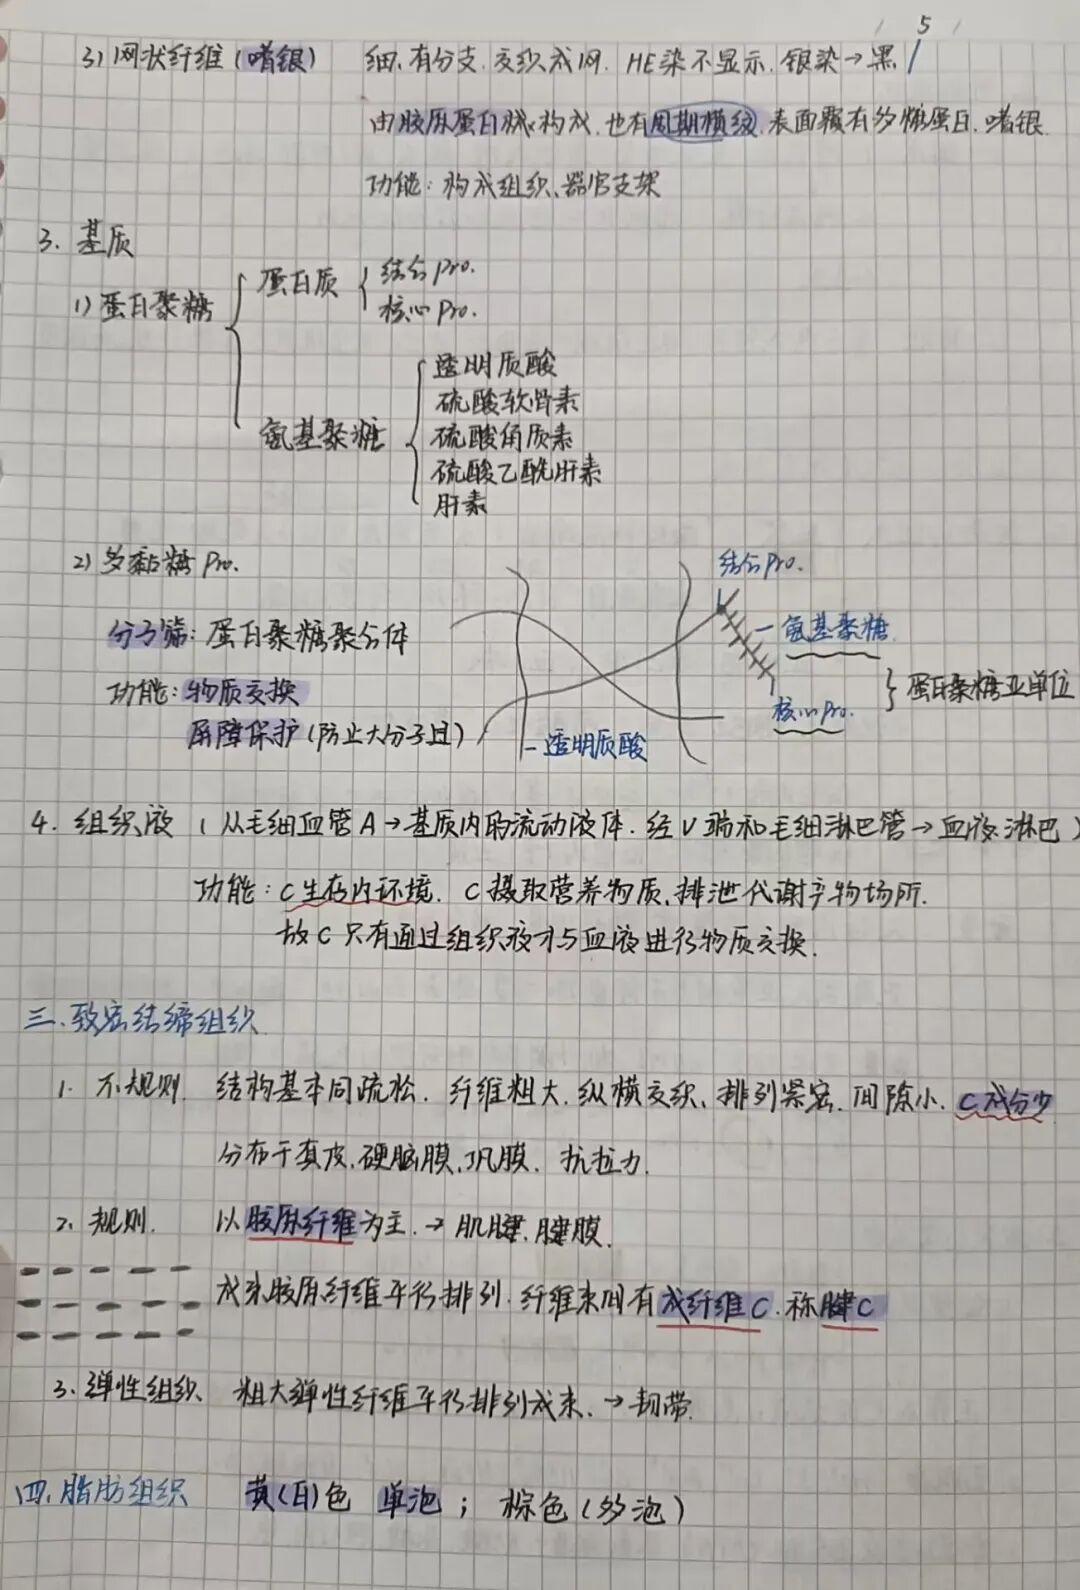 5
3) 网状纤维(嗜银) 细、有分支、交织成网. HE染不显示, 银染→黑
由胶原蛋白 构成, 也有周期横纹, 表面颗有多糖蛋白, 嗜银.
功能: 构成组织、器官支架
3. 基质
1) 蛋白聚糖 { 蛋白质 { 结合Pro.
核心Pro.
氨基聚糖 { 透明质酸
硫酸软骨素
硫酸角质素
硫酸乙酰肝素
肝素
2) 多黏糖Pro.
分子筛: 蛋白聚糖聚合体
功能: 物质交换
屏障保护(防止大分子过)
结合Pro.
氨基聚糖
核心Pro.
} 蛋白聚糖亚单位
透明质酸
4. 组织液 (从毛细血管A→基质内的流动液体. 经V端和毛细淋巴管→血液、淋巴)
功能: C生存内环境. C摄取营养物质, 排泄代谢产物场所.
故C只有通过组织液才与血液进行物质交换.
三. 致密结缔组织
1. 不规则. 结构基本同疏松. 纤维粗大, 纵横交织, 排列紧密, 间隙小, C成分少
分布于真皮, 硬脑膜, 巩膜. 抗拉力.
2. 规则. 以胶原纤维为主. → 肌腱, 腱膜.
成束胶原纤维平行排列. 纤维束间有成纤维C. 称腱C
3. 弹性组织、 粗大弹性纤维平行排列成束、→韧带.
四. 脂肪组织 黄(白)色 单泡; 棕色(多泡)